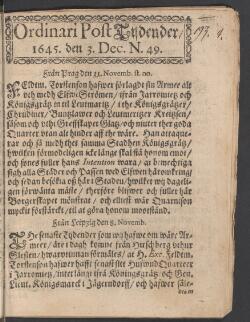 Ordinari Post Tijdender/
1645. den 3. Dec. N. 49.
Ifrån Prag den 11. Novemb. st. no.
Feldtm. Torstenson hafwer förlagdt sin Armee alt
och medh Elfwe Strömen/ ifrån Jarromietz och
Königsgrätz in til Leutmaritz/ i the Königsgrätzer/
Chrudimer/ Buntzlawer och Leutmeritzer Kretzsen/
såsom och uthi Greffskapet Glatz/ och nutter ther goda
Quarter utan alt hinder aff the wåre. Han attaque-
rar och så medh thet samma Stadhen Königsgrätz/
hwilken förmodeligen icke länge skal stå honom emot/
och synes fuller hans Intention wara/ at bemechtiga
sigh alla Städer och Passen wed Elfwen häromkring/
och sedan besöka oß här i Staden/ hwilket wij dageli-
gen förwänta måste/ therföre blifwer och fuller här
Borgerskapet mönstrat/ och elliest wår Quarnison
mycket förstärckt/ til at göra honom moorstånd.
Ifrån Leipzig den 8. Novemb.
The senaste Tijdender som wij hafwe om wåre Ar-
meer/ äre i dagh komne ifrån Hirschberg uthur
Slesien/ hwarutinnan förmäles/ at H. Exc. Feldtm.
Torstenson hafwer hafft senast sitt Hufwud Quarteer
i Jarromietz/ intet långt ifrå Königsgrätz och Gen.
Lieut. Königsmarck i Jägerndorff/ och hafwer såle-